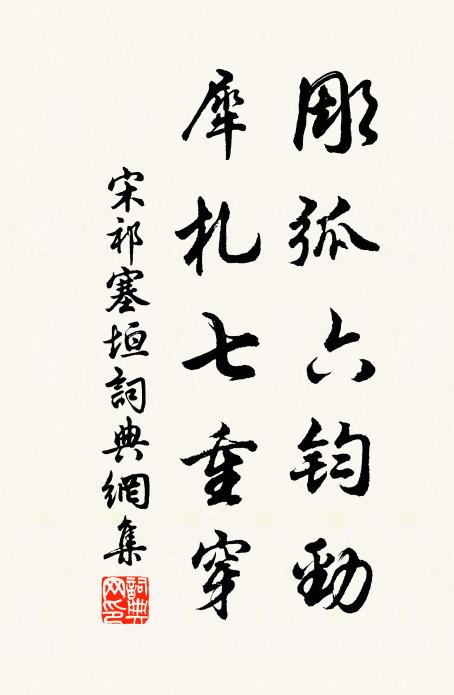 彫弧六鈞勁
犀札七重穿
宋祁塞垣詞典網集
詞典网印